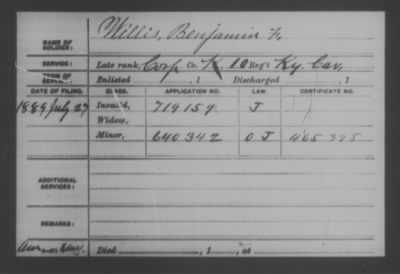 NAME OF SOLDIER: Willis, Benjamin F.
SERVICE: Late rank, Corp Co. K 10 Reg't Ky. Cav.
TERM OF SERVICE: Enlisted , 1 Discharged , 1
DATE OF FILING. CLASS. APPLICATION NO. LAW. CERTIFICATE NO.
1889 July 27 Invalid, 719159 J
Widow,
Minor, 640342 O J 465395
ADDITIONAL SERVICES:
REMARKS:
Died , 1 , at